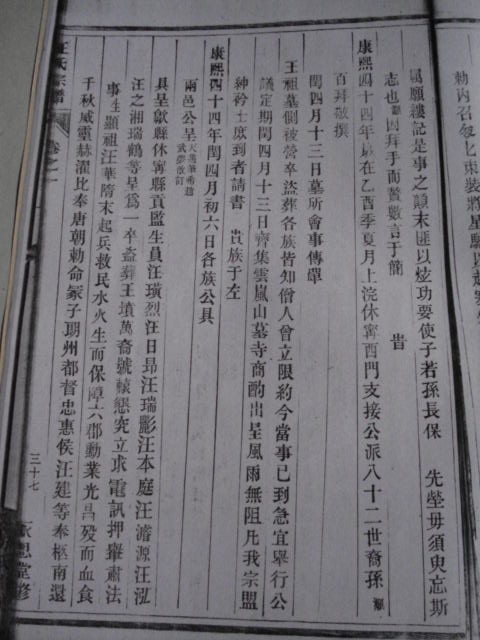 勅內召匆匆束裝將星
屬願縷記是事之顛末匪以炫功要使子若孫長保　先塋毋須臾忘斯
志也　因拜手而贅數言于簡　旹
康熙四十四年歲在乙酉季夏月上浣休寧西門支接公派八十二世裔孫
百拜敬撰
閏四月十三日墓所會事傳單
王祖墓側被營卒盜葬各族皆知僧人曾立限約今當事已到急宜舉行公
議定期閏四月十三日齊集雲嵐山墓寺商酌出呈風雨無阻凡我宗盟
紳衿士庶到者請書　貴族于左
康熙四十四年閏四月初六日各族公具
兩邑公呈
具呈歙縣休寧縣貢監生員汪璜烈汪日昂汪瑞彨汪本庭汪澹源汪泓
汪之湘瑞鶴等呈爲一卒盜葬王墳萬裔號轅懇究立求電訊押舉肅法
事生顯祖汪華隋末起兵救民水火生而保障六郡勳業光昌歿而血食
千秋威靈赫濯比奉唐朝勅命冢子朗州都督忠惠侯汪建等奉柩南還
汪氏宗譜
卷之一
三十七